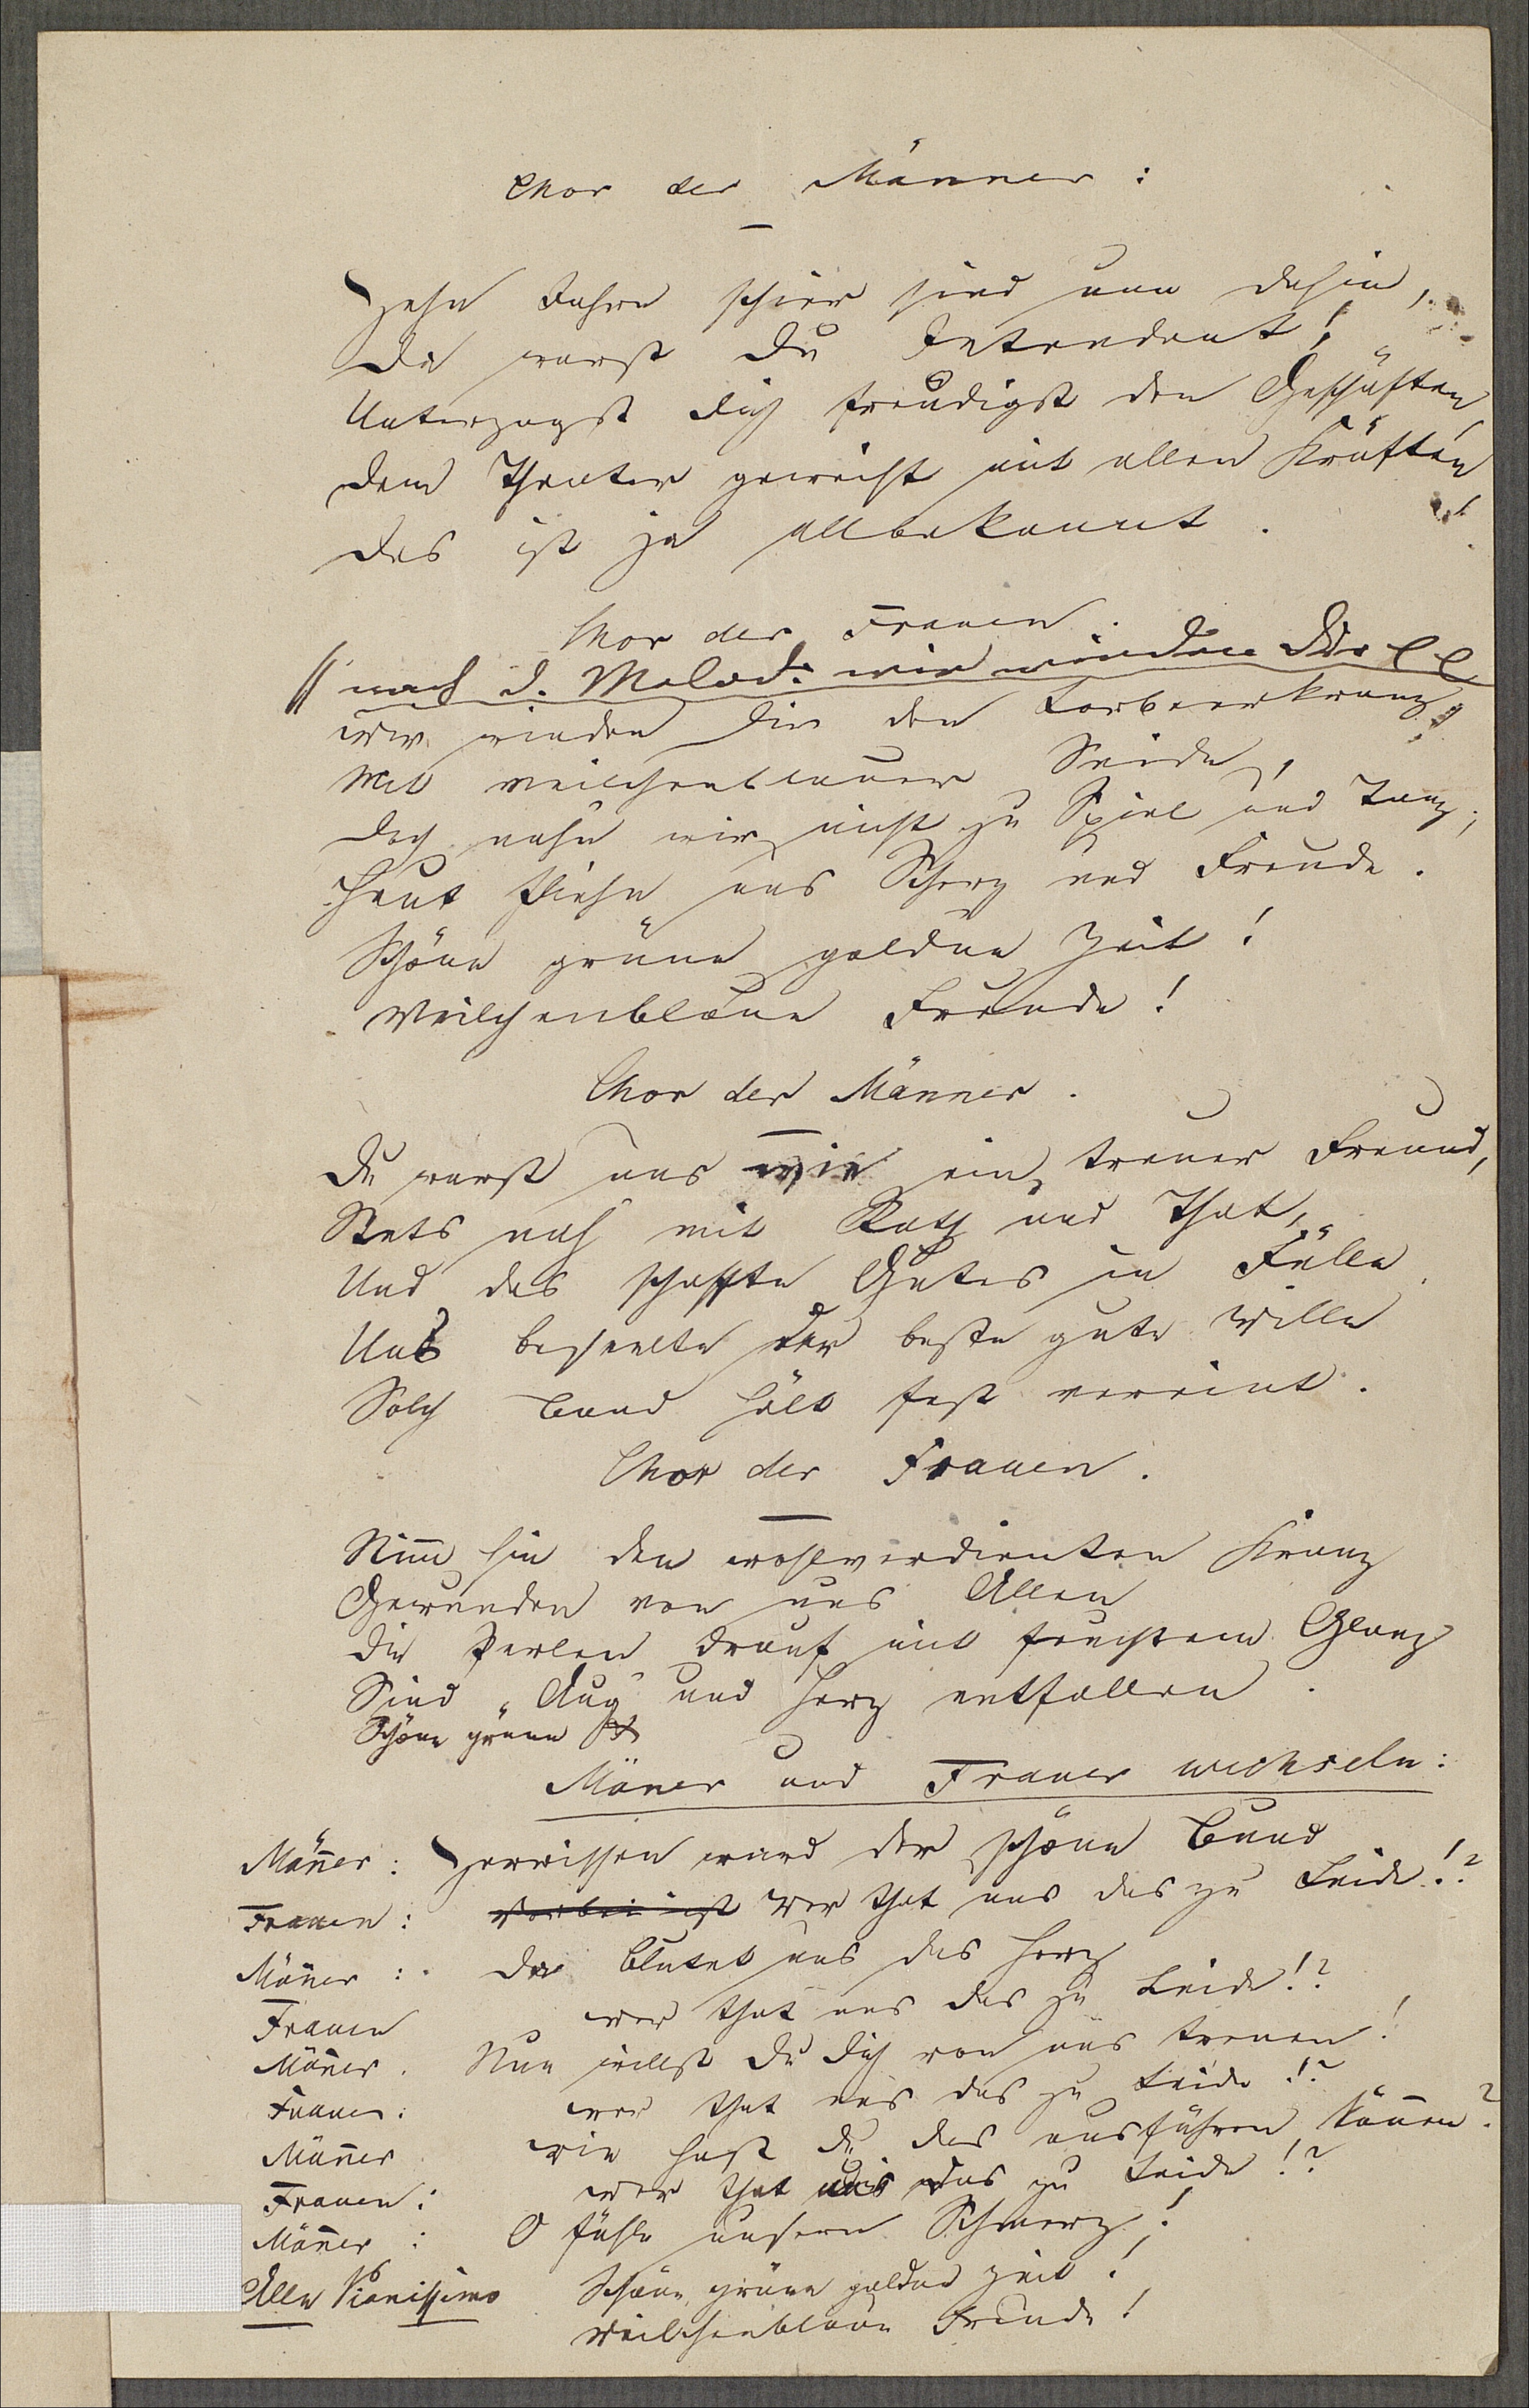 Chor der Männer:
Zehn Jahre schier sind nun dahin,
Da warst Du Intendant!
Unterzogst Dich freudigst den Geschäften
Dem Theater geweiht mit allen Kräften
Das ist ja allbekannt.
Chor der Frauen.
nach d. Melod: wir winden Dir
Wir winden Dir den Lorbeerkranz
Mit veilchenblauer Seide,
Doch nahn wir nicht zu Spiel und Tanz;
Heut fliehn uns Scherz und Freude.
Schöne grüne goldne Zeit!
Veilchenblaue Freude!
Chor der Männer.
Du warst uns wie ein treuer Freund,
Stets nah mit Rath und That,
Und das schaffte Gutes in Fülle
Uns beseelte der beste gute Wille
Solch Band hält fest vereint.
Chor der Frauen.
Nimm hin den wohlverdienten Kranz
Gewunden von uns Allen
Die Perlen drauf mit feuchtem Glanz
Sind Aug und Herz entfallen.
Schöne grüne
Mäner und Frauen wechseln:
Männer: Zerrissen ward der schöne Bund
Frauen: Vorbei ist Wer that uns das zu Leide!?
Männer: Da blutet uns das Herz
Frauen wer that uns das zu Leide!?
Männer. Nun willst Du Dich von uns trennen!
Frauen: wer that uns das zu Leide!?
Männer wie hast du das ausführen können?
Frauen: wer that uns das zu Leide!?
Männer: O fühle unsern Schmerz!
Alle Pianissimo Schöne grüne goldne Zeit!
Veilchenblaue Freude!